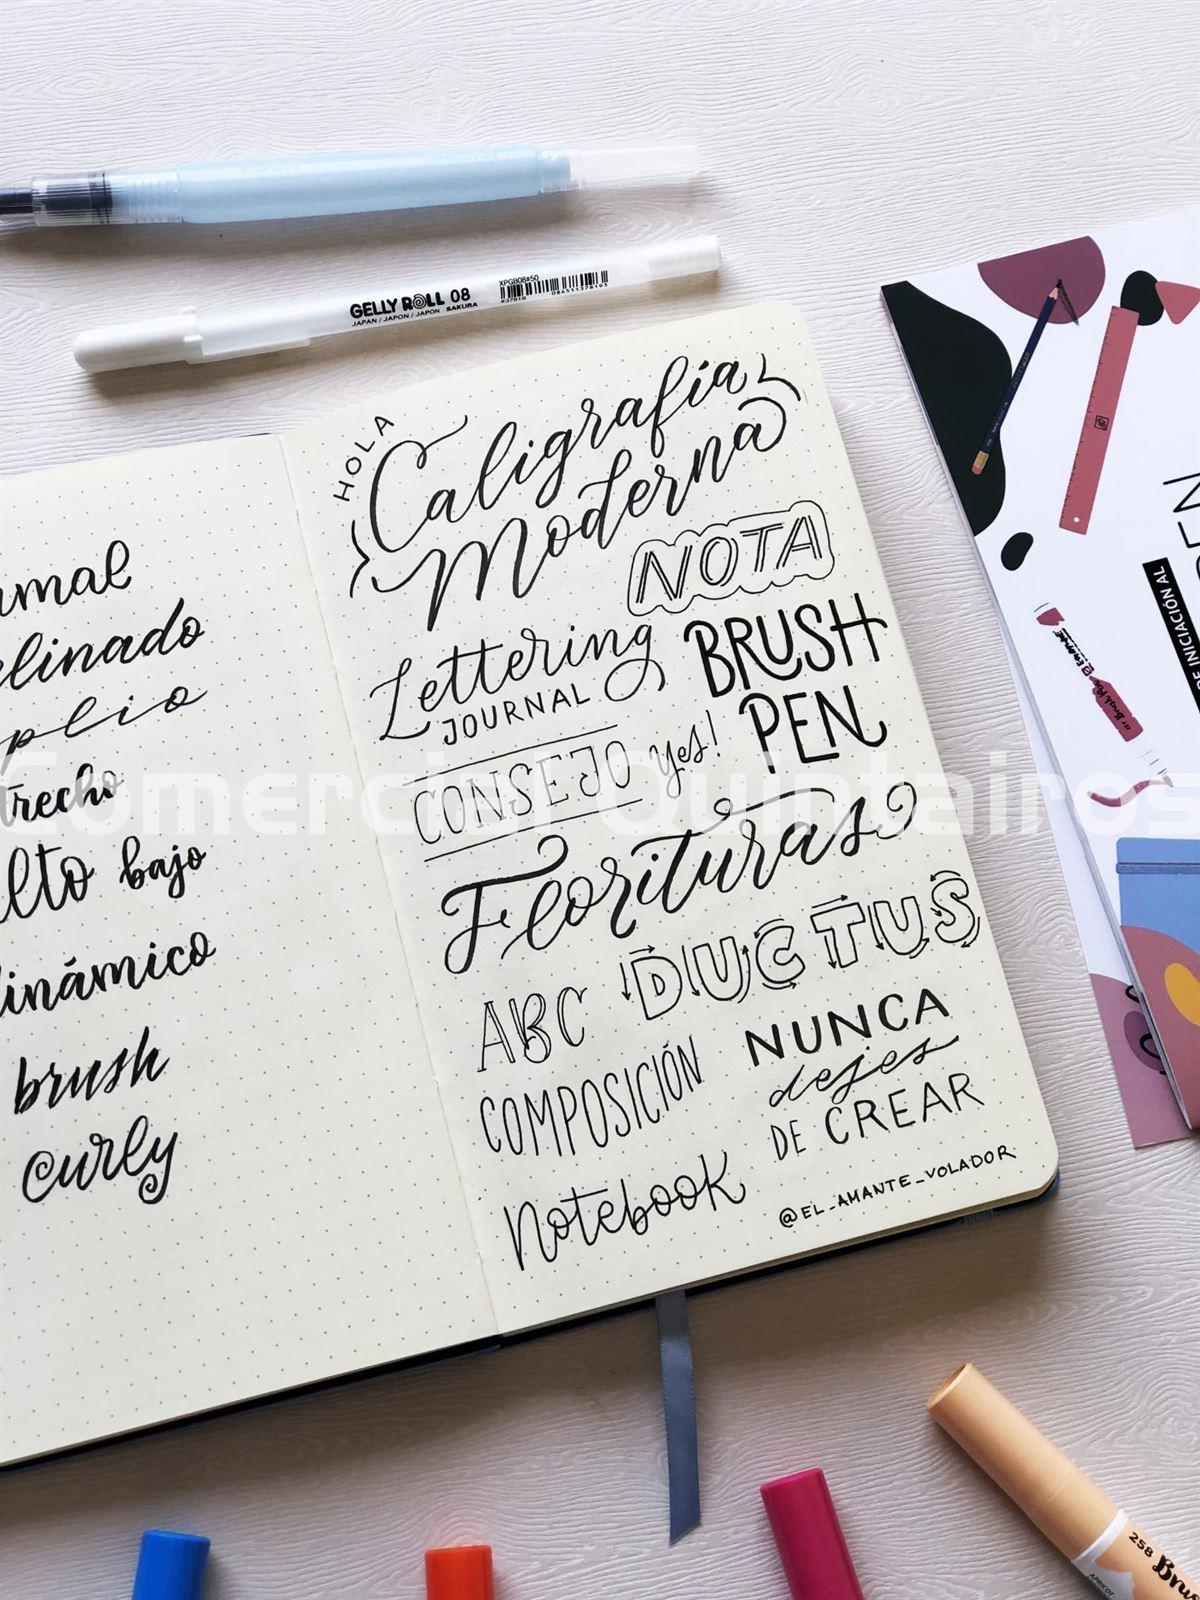 GELLY ROLL 08
JAPAN / JAPON / JAPON SAKURA
XPGB08#50
HOLA
Caligrafía
Moderna
NOTA
Lettering
JOURNAL
BRUSH
PEN
CONSEJO
yes!
Florituras
DUCTUS
ABC
COMPOSICIÓN
NUNCA
dejes
DE CREAR
Notebook
@EL_AMANTE_VOLADOR
alto bajo
dinámico
brush
curly
DE INICIACIÓN AL
Comercial Quintairos
258
APRICOT